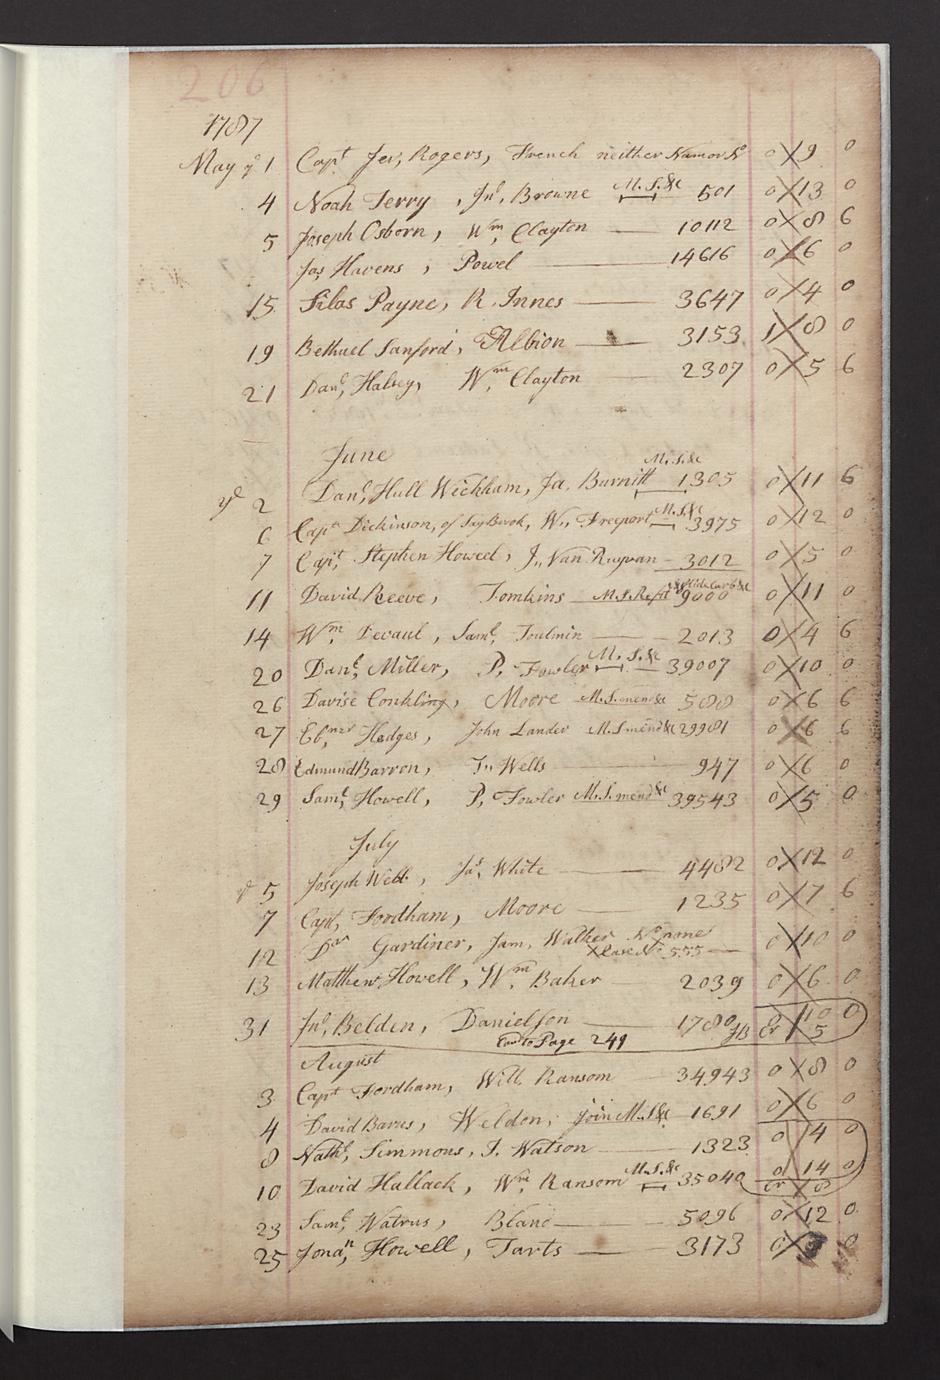 206
1787
May ye 1 Capt Jer, Rogers, French neither Name or No 0 9 0
4 Noah Terry, Jno, Browne M.S.&c 501 0 13 0
5 Joseph Osborn, Wm, Clayton 10112 0 8 6
Jas, Havens, Powel 14616 0 6 0
15 Silas Payne, R. Innes 3647 0 4 0
19 Bethuel Sanford, Albion 3153 1 8 0
21 Danl, Halsey, Wm, Clayton 2307 0 5 6
June
ye 2 Danl, Hull Wickham, Ja. Burnitt M.S.&c 1305 0 11 6
6 Capt Dickinson, of Say Brook, Wm, Freeport M.S.&c 3975 0 12 0
7 Capt, Stephen Howell, J,, Van Ruyvan 3012 0 5 0
11 David Reeve, Tomkins M.S. 9000 0 11 0
14 Wm, Devaul, Saml, Toulmin 2013 0 4 6
20 Danl, Miller, P, Fowler M.S.&c 39007 0 10 0
26 Davise Conkling, Moore M.S. mend &c 5088 0 6 6
27 Ebnzr Hedges, John Lander M.S mend &c 29981 0 6 6
28 Edmund Barron, Jn Wells 947 0 6 0
29 Saml, Howell, P, Fowler M.S. mend &c 39543 0 5 0
July
ye 5 Joseph Webb, Jas, White 4482 0 12 0
7 Capt, Fordham, Moore 1235 0 7 6
12 Dan Gardiner, Jam, Walker No name
Case No 555 0 10 0
13 Matthew Howell, Wm, Baker 2039 0 6 0
31 Jno, Belden, Danielson 1780 0 10 0
to Page 249 JB Cr 5
August
3 Capt Fordham, Will. Ransom 34943 0 8 0
4 David Barns, Weldon, join M.S.&c 1691 0 6 0
8 Nathl, Simmons, J. Watson 1323 0 4 0
10 David Hallack, Wm, Ransom M.S.&c 35040 0 14 0
Cr 8
23 Saml, Watrus, Blanc 5096 0 12 0
25 Jonan, Howell, Tarts 3173 0 0